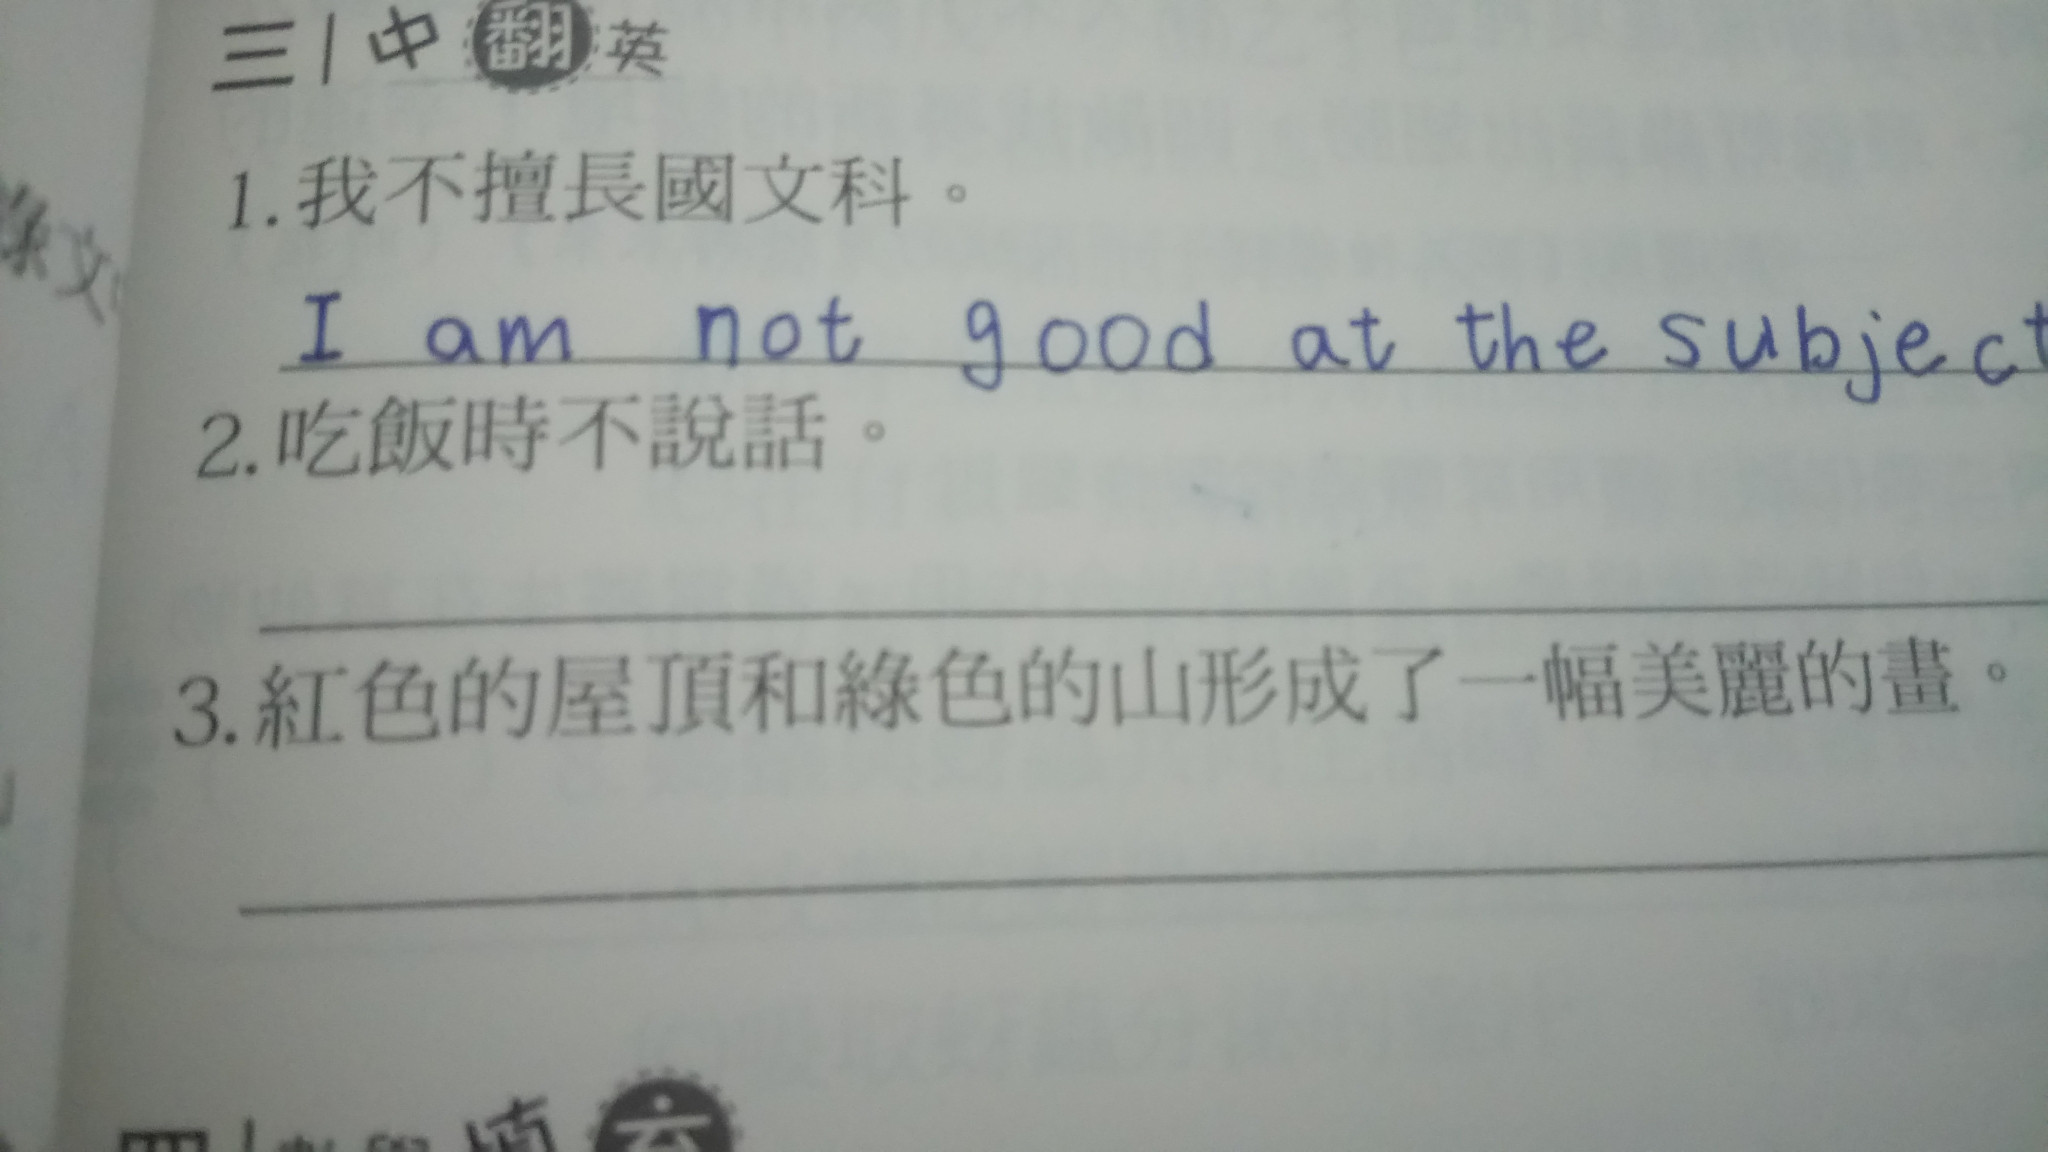 三 中翻英
1. 我不擅長國文科。
I am not good at the subject
2. 吃飯時不說話。
3. 紅色的屋頂和綠色的山形成了一幅美麗的畫。
四 填